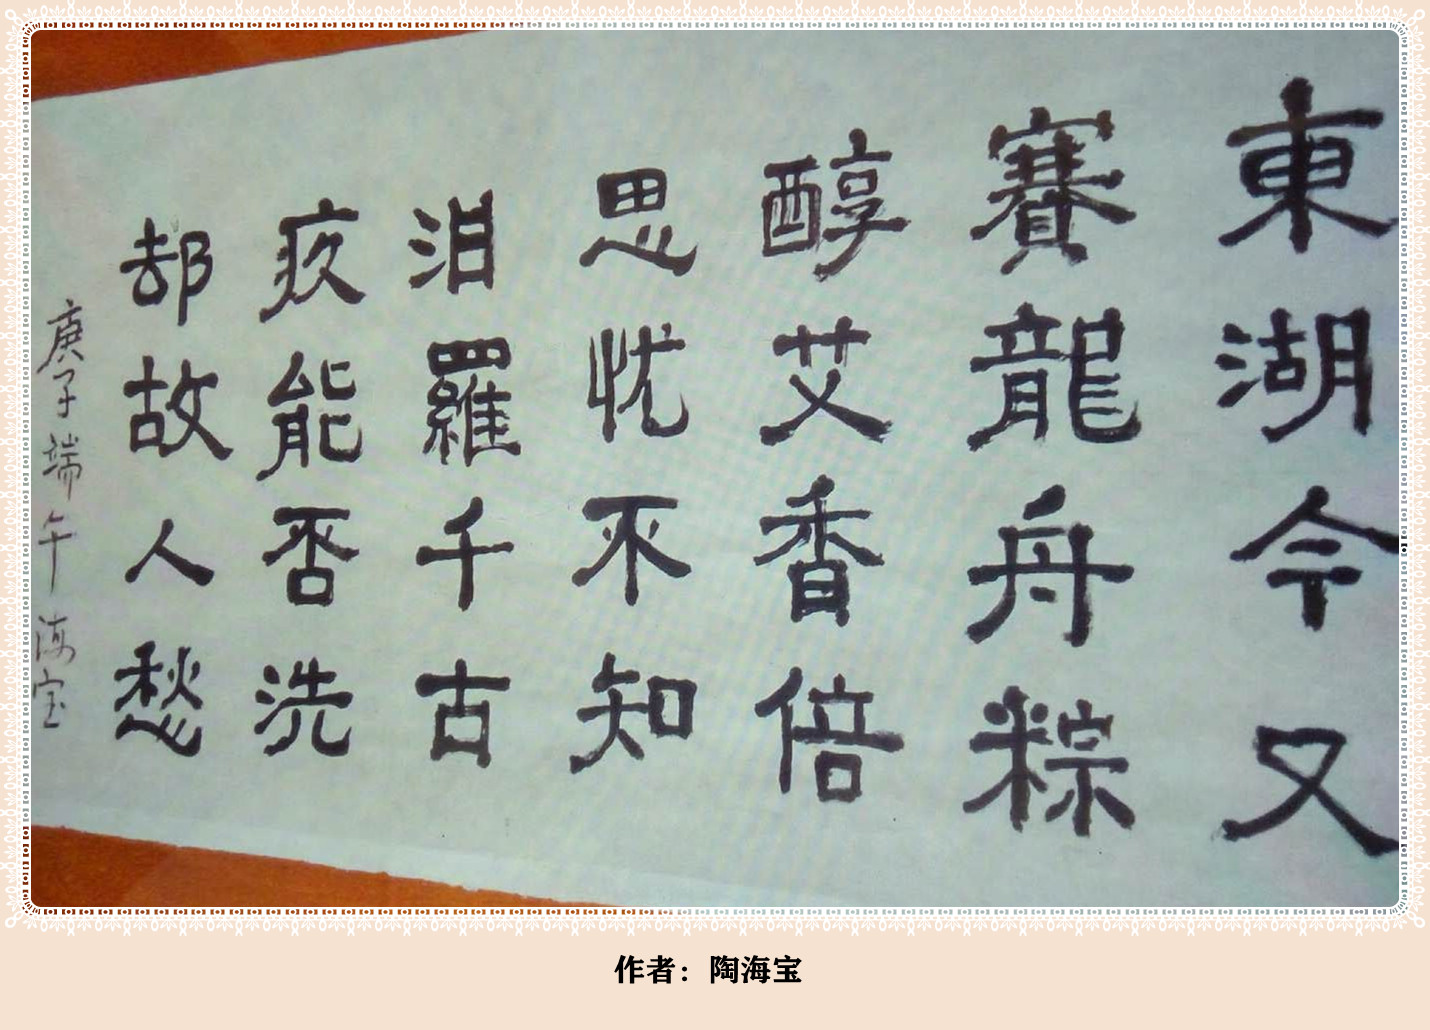 東湖今又
賽龍舟粽
醇艾香倍
思忧不知
汨羅千古
疚能否洗
却故人愁
庚子端午海宝
作者：陶海宝